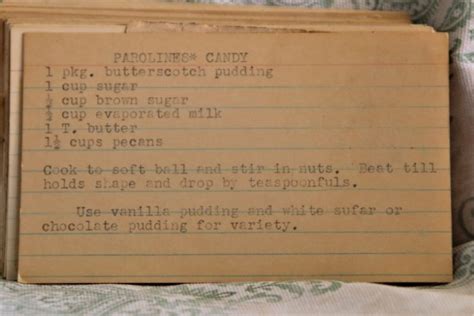 PAROLINES* CANDY
1 pkg. butterscotch pudding
1 cup sugar
½ cup brown sugar
½ cup evaporated milk
1 T. butter
1½ cups pecans
Cook to soft ball and stir in nuts. Beat till
holds shape and drop by teaspoonfuls.
Use vanilla pudding and white sufar or
chocolate pudding for variety.